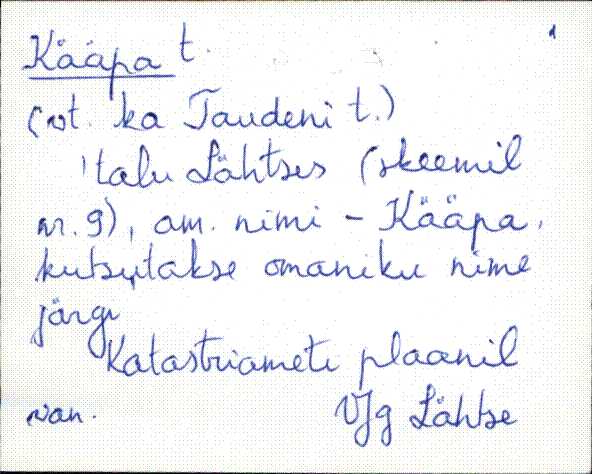 Kääpa t. 1
(vt. ka Taudeni t.)
talu Lähtses (skeemil
nr. 9), am. nimi - Kääpa,
kutsutakse omaniku nime
järgi
Katastriameti plaanil
van. VJg Lähtse